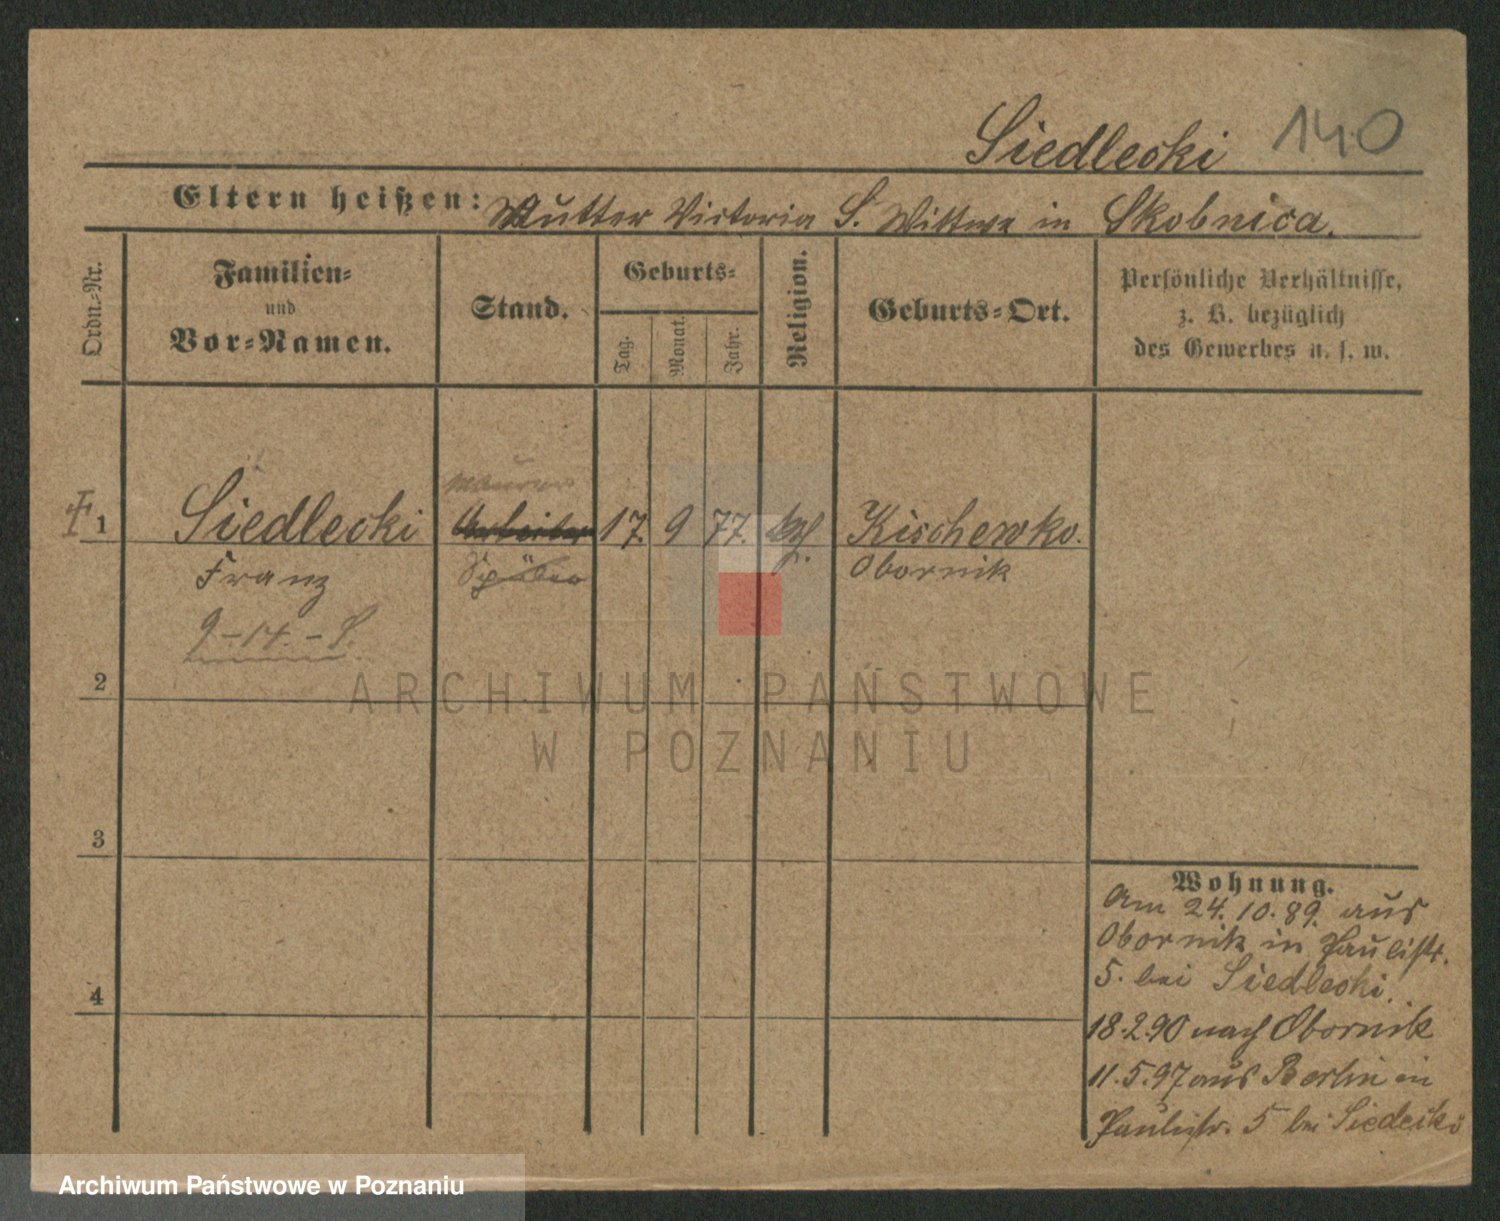 Siedlecki 140
Eltern heißen: Mutter Victoria S. Wittwe in Skobnica.
Ordn.-Nr.
Familien-
und
Vor-Namen.
Stand.
Geburts-
Tag.
Monat.
Jahr.
Religion.
Geburts-Ort.
Persönliche Verhältnisse,
z. B. bezüglich
des Gewerbes u. s. w.
Maurer
1 Siedlecki Arbeiter 17. 9 77. kth. Kischewko.
Franz Obornik
2
3
4
Wohnung.
Am 24. 10. 89. aus
Obornik in Paulistr.
5. bei Siedlecki.
18.2.90 nach Obornik
11.5.97 aus Berlin in
Paulistr. 5 bei Siedlecki
ARCHIWUM PAŃSTWOWE
W POZNANIU
Archiwum Państwowe w Poznaniu